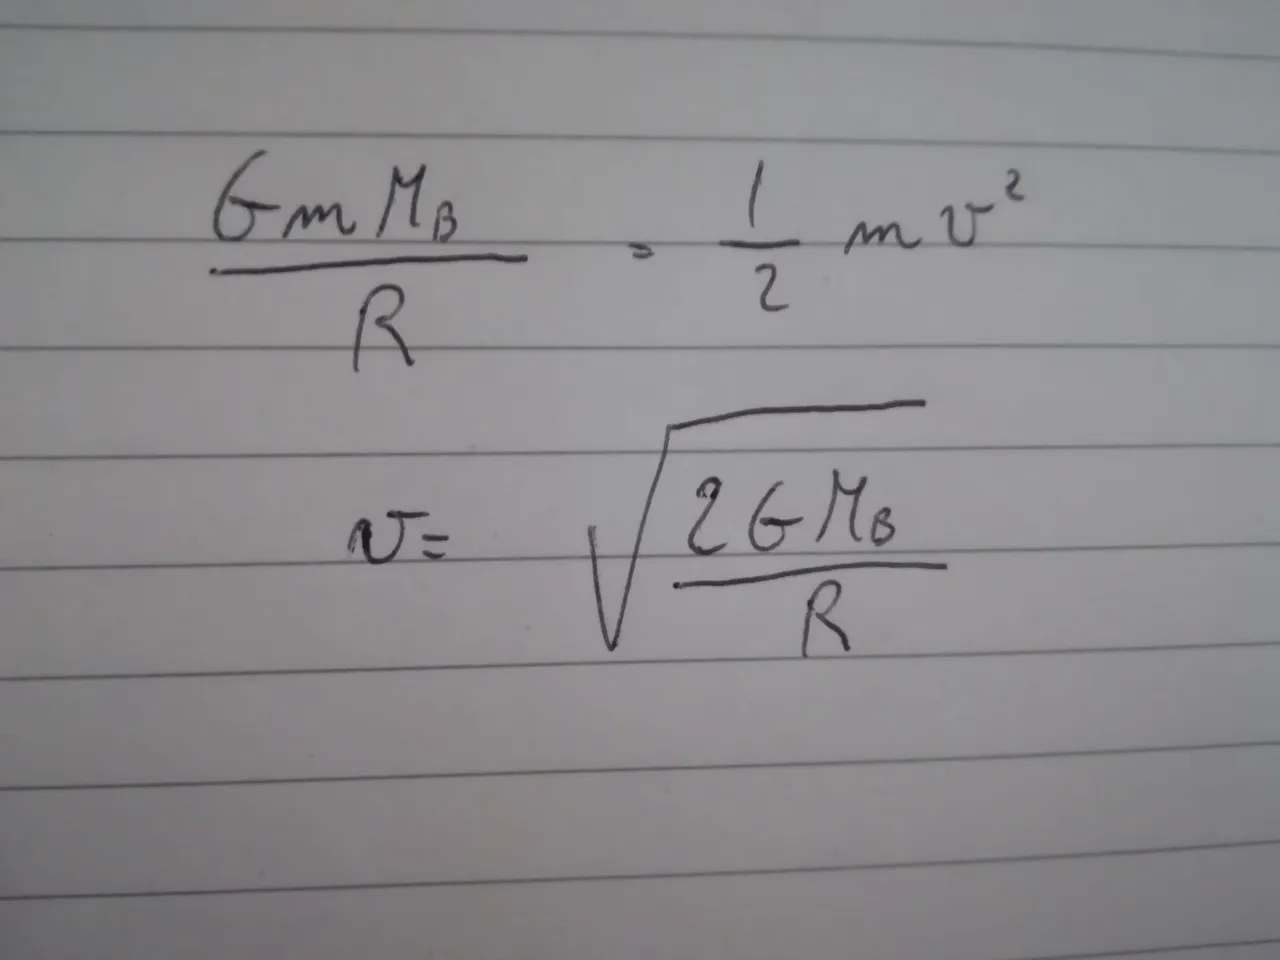 G m M_B / R = 1/2 m v²
v = √(2 G M_B / R)